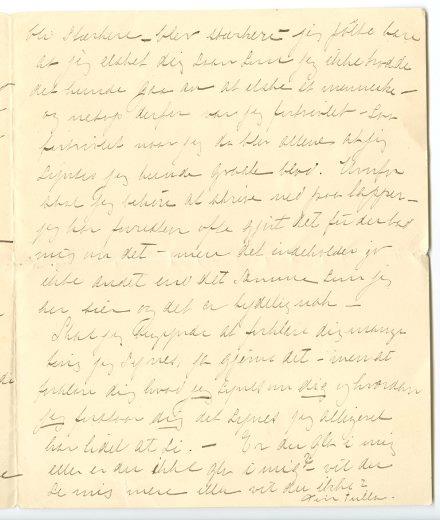 bli stærkere – blev stærkere – jeg følte bare
at jeg elsket dig saan som jeg ikke trodde
det kunde gaa an at elske et menneske –
og netop derfor var jeg fortvilet – Saa
fortvilet naar jeg da blev allene at jeg
syntes jeg kunde græde blod. Hvorfor
skal jeg behøve at skrive ned paa lapper –
jeg har foresten ofte gjort det før du bad
mig om det – mere det indeholder jo
ikke andet end det samme som jeg
her sier og det er tydelig nok –
Skal jeg begynde at forklare dig mange
ting jeg synes, ja gjerne det – men at
forklare dig hvad jeg synes om dig og hvordan
jeg forstaar dig det synes jeg alligevel
har lidet at si. – Er du glad i mig
eller er du ikke glad i mig? vil du
se mig mere eller vil du ikke?
Din Tulla.